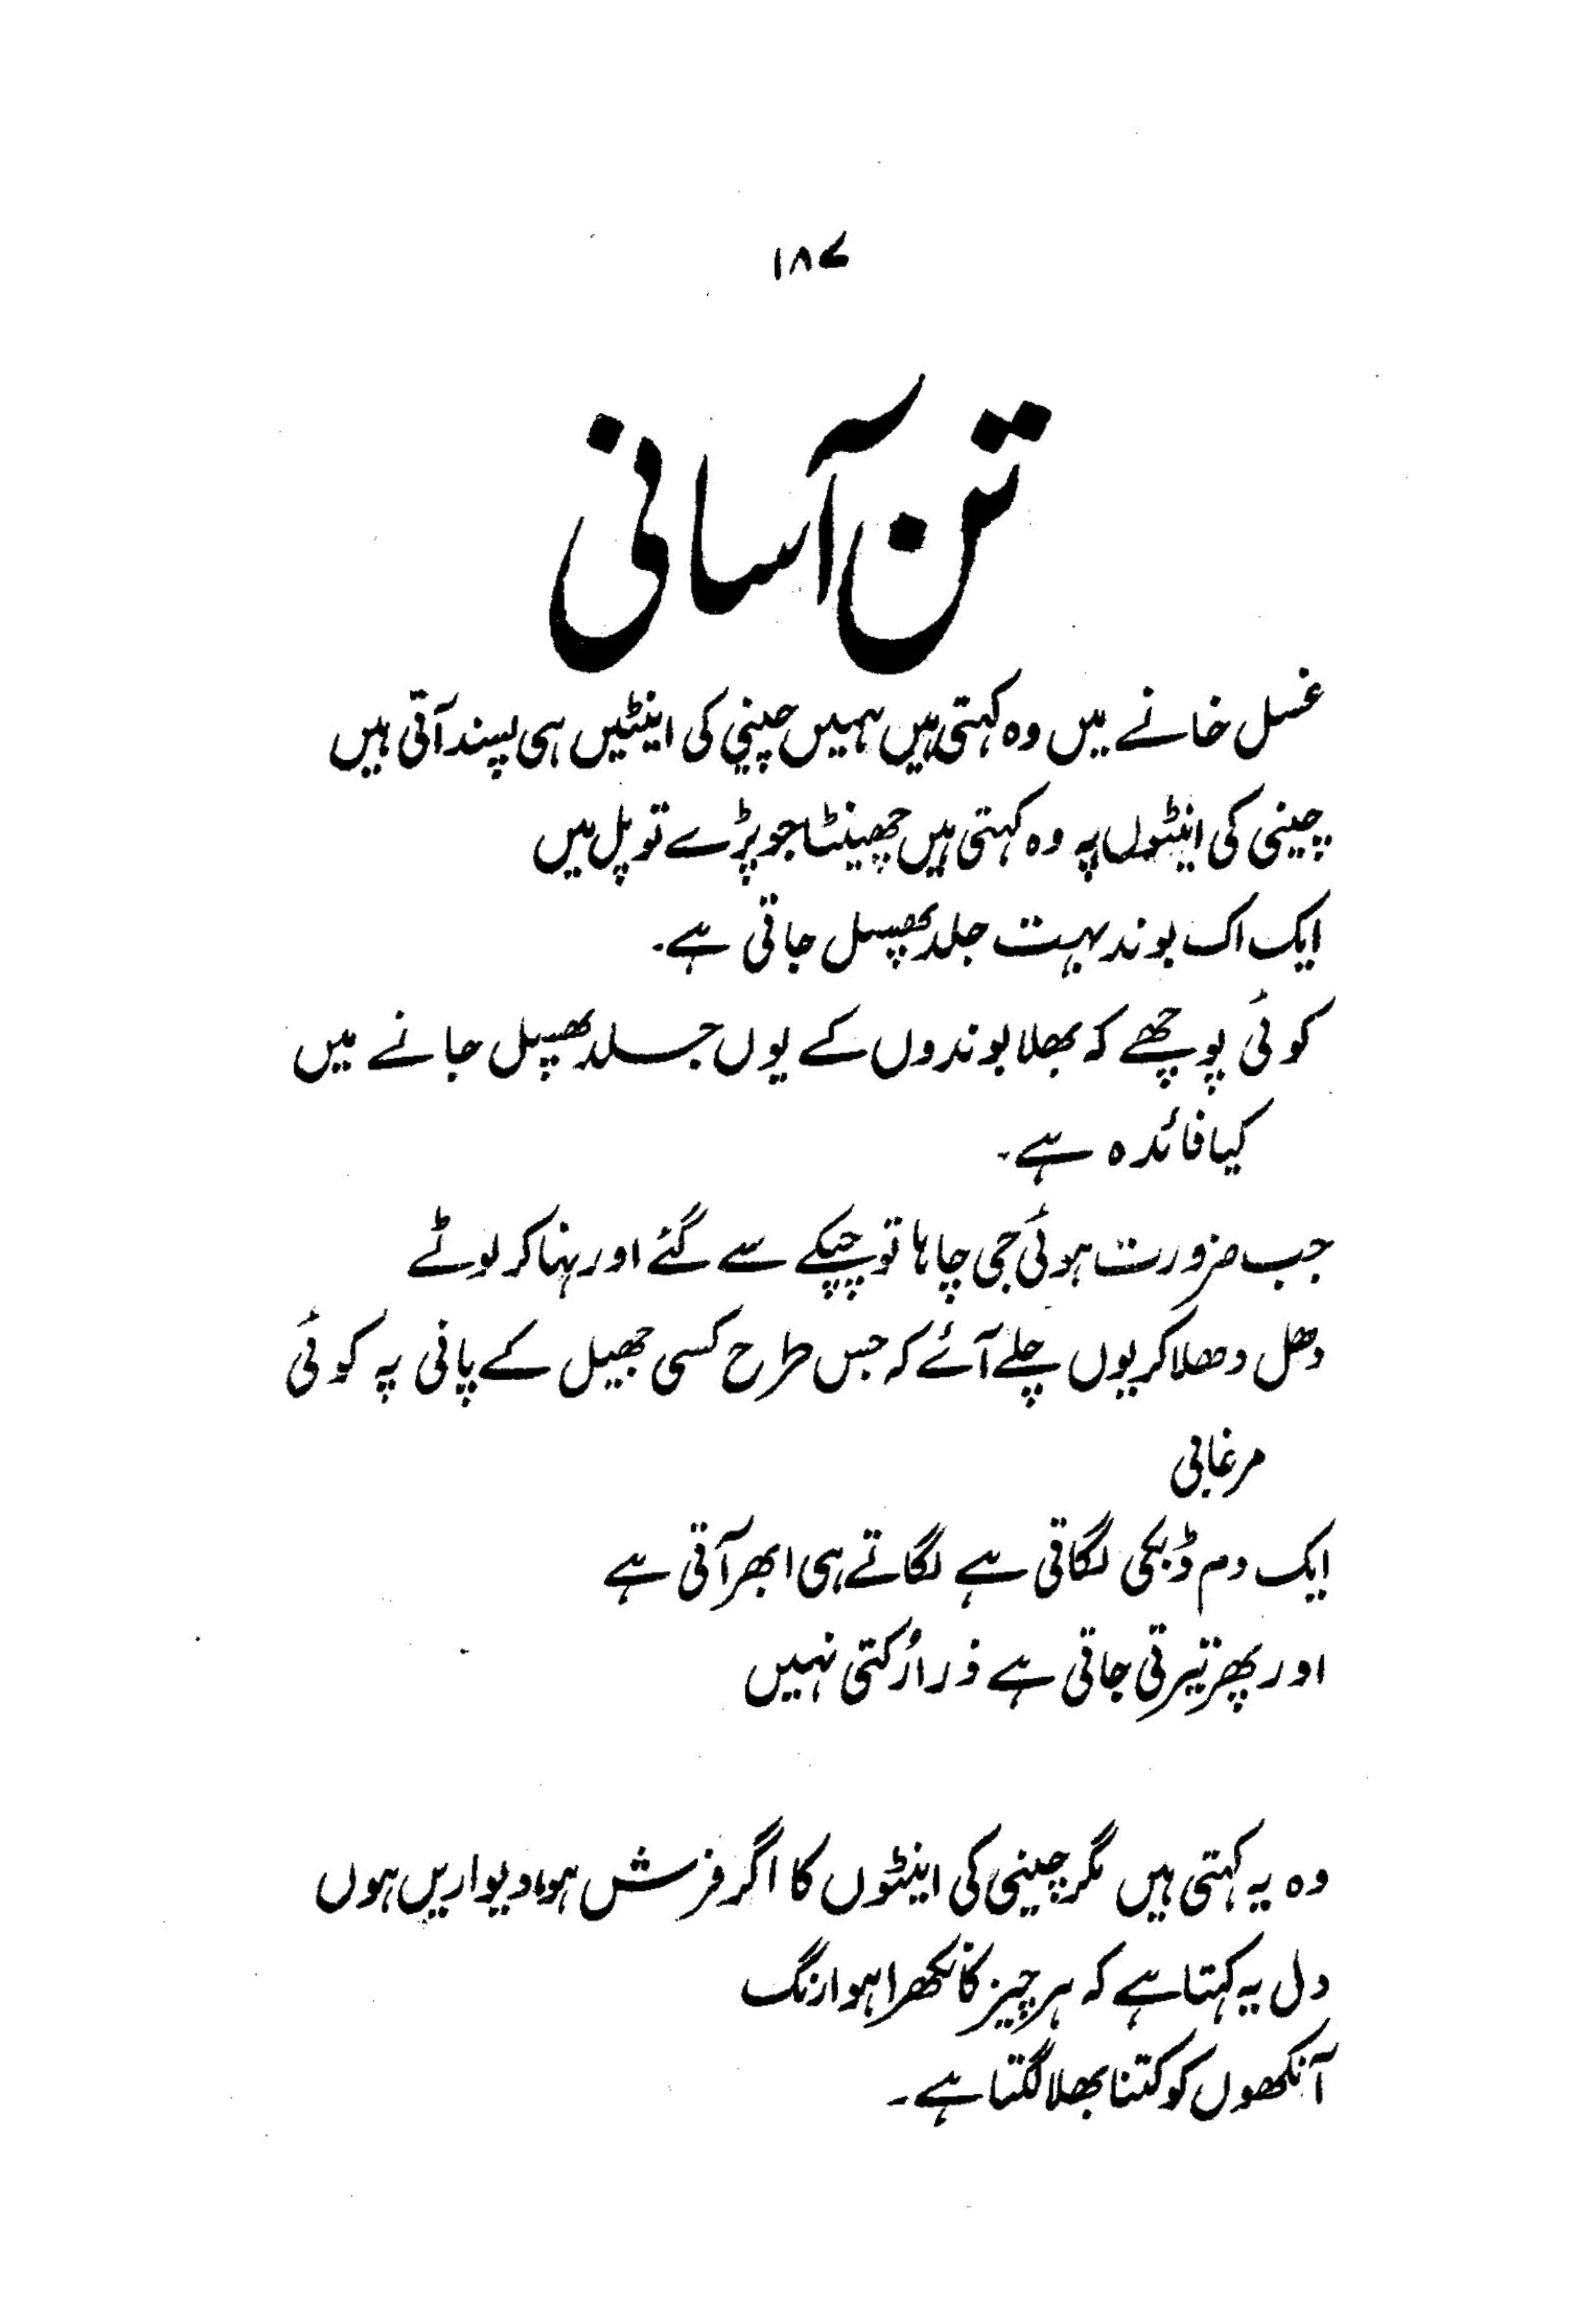 ۱۸۷
تن آسانی
غسل خانے میں وہ کہتی ہیں ہمیں چینی کی اینٹیں ہی پسند آتی ہیں
چینی کی اینٹوں پہ وہ کہتی ہیں چھینٹا جو پڑے تو پل میں
ایک اک بوند بہت جلد پھسل جاتی ہے۔
کوئی پوچھے کہ بھلا بوندوں کے یوں جلد پھسل جانے میں
کیا فائدہ ہے۔
جب ضرورت ہوئی جی چاہا تو چپکے سے گئے اور نہا کر لوٹے
دھل دھلا کر یوں چلے آئے کہ جس طرح کسی جھیل کے پانی پہ کوئی
مرغابی
ایک دم ڈبکی لگاتی ہے لگاتے ہی ابھر آتی ہے
اور پھر تیرتی جاتی ہے ذرا رُکتی نہیں
وہ یہ کہتی ہیں مگر چینی کی اینٹوں کا اگر فرش ہو، دیواریں ہوں
دل یہ کہتا ہے کہ ہر چیز کا نکھرا ہوا رنگ
آنکھوں کو کتنا بھلا لگتا ہے۔